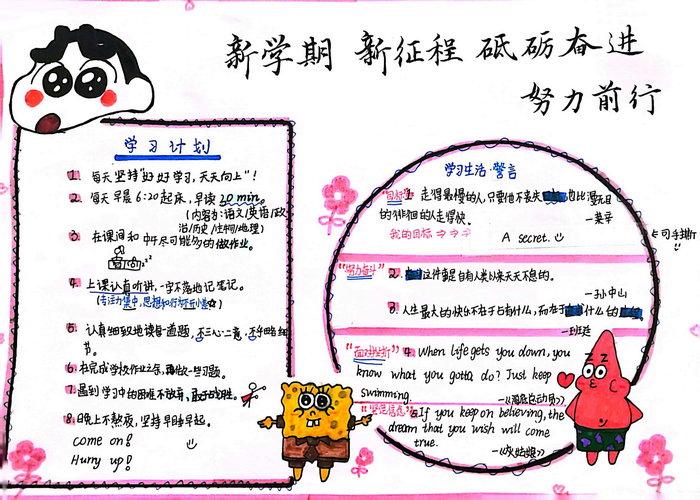 新学期 新征程 砥砺奋进
努力前行
学习计划
1. 每天坚持"好好学习,天天向上"!
2. 每天早晨6:20起床,早读20min。
(内容含:语文/英语/政
治/历史/生物/地理)
3. 在课间和中午尽可能多的做作业。
zzz
4. 上课认真听讲,一字不落地记笔记。
5. 认真细致地读每一道题,不三心二意,不
节。
6. 在完成学校作业之余,再做一些习题。
7. 遇到学习中的困难不放弃,
8. 晚上不熬夜,坚持早睡早起。
come on!
Hurry up!
学习生活·警言
"目标" 1. 走得最慢的人,只要他不丧失目标,也比漫无目
的徘徊的人走得快。
—莱辛
我的目标 → → →
A secret.
"努力奋斗" 2. 奋斗这件事是自有人类以来天天不息的。
—孙中山
3. 人生最大的快乐不在于占有什么,而在于追求什么的过程。
—班廷
"面对挫折" 4. When life gets you down, you
know what you gotta do? Just keep
swimming.
—《海底总动员》
"坚定信念" 5. If you keep on believing, the
dream that you wish will come
true.
—《灰姑娘》
可手撕